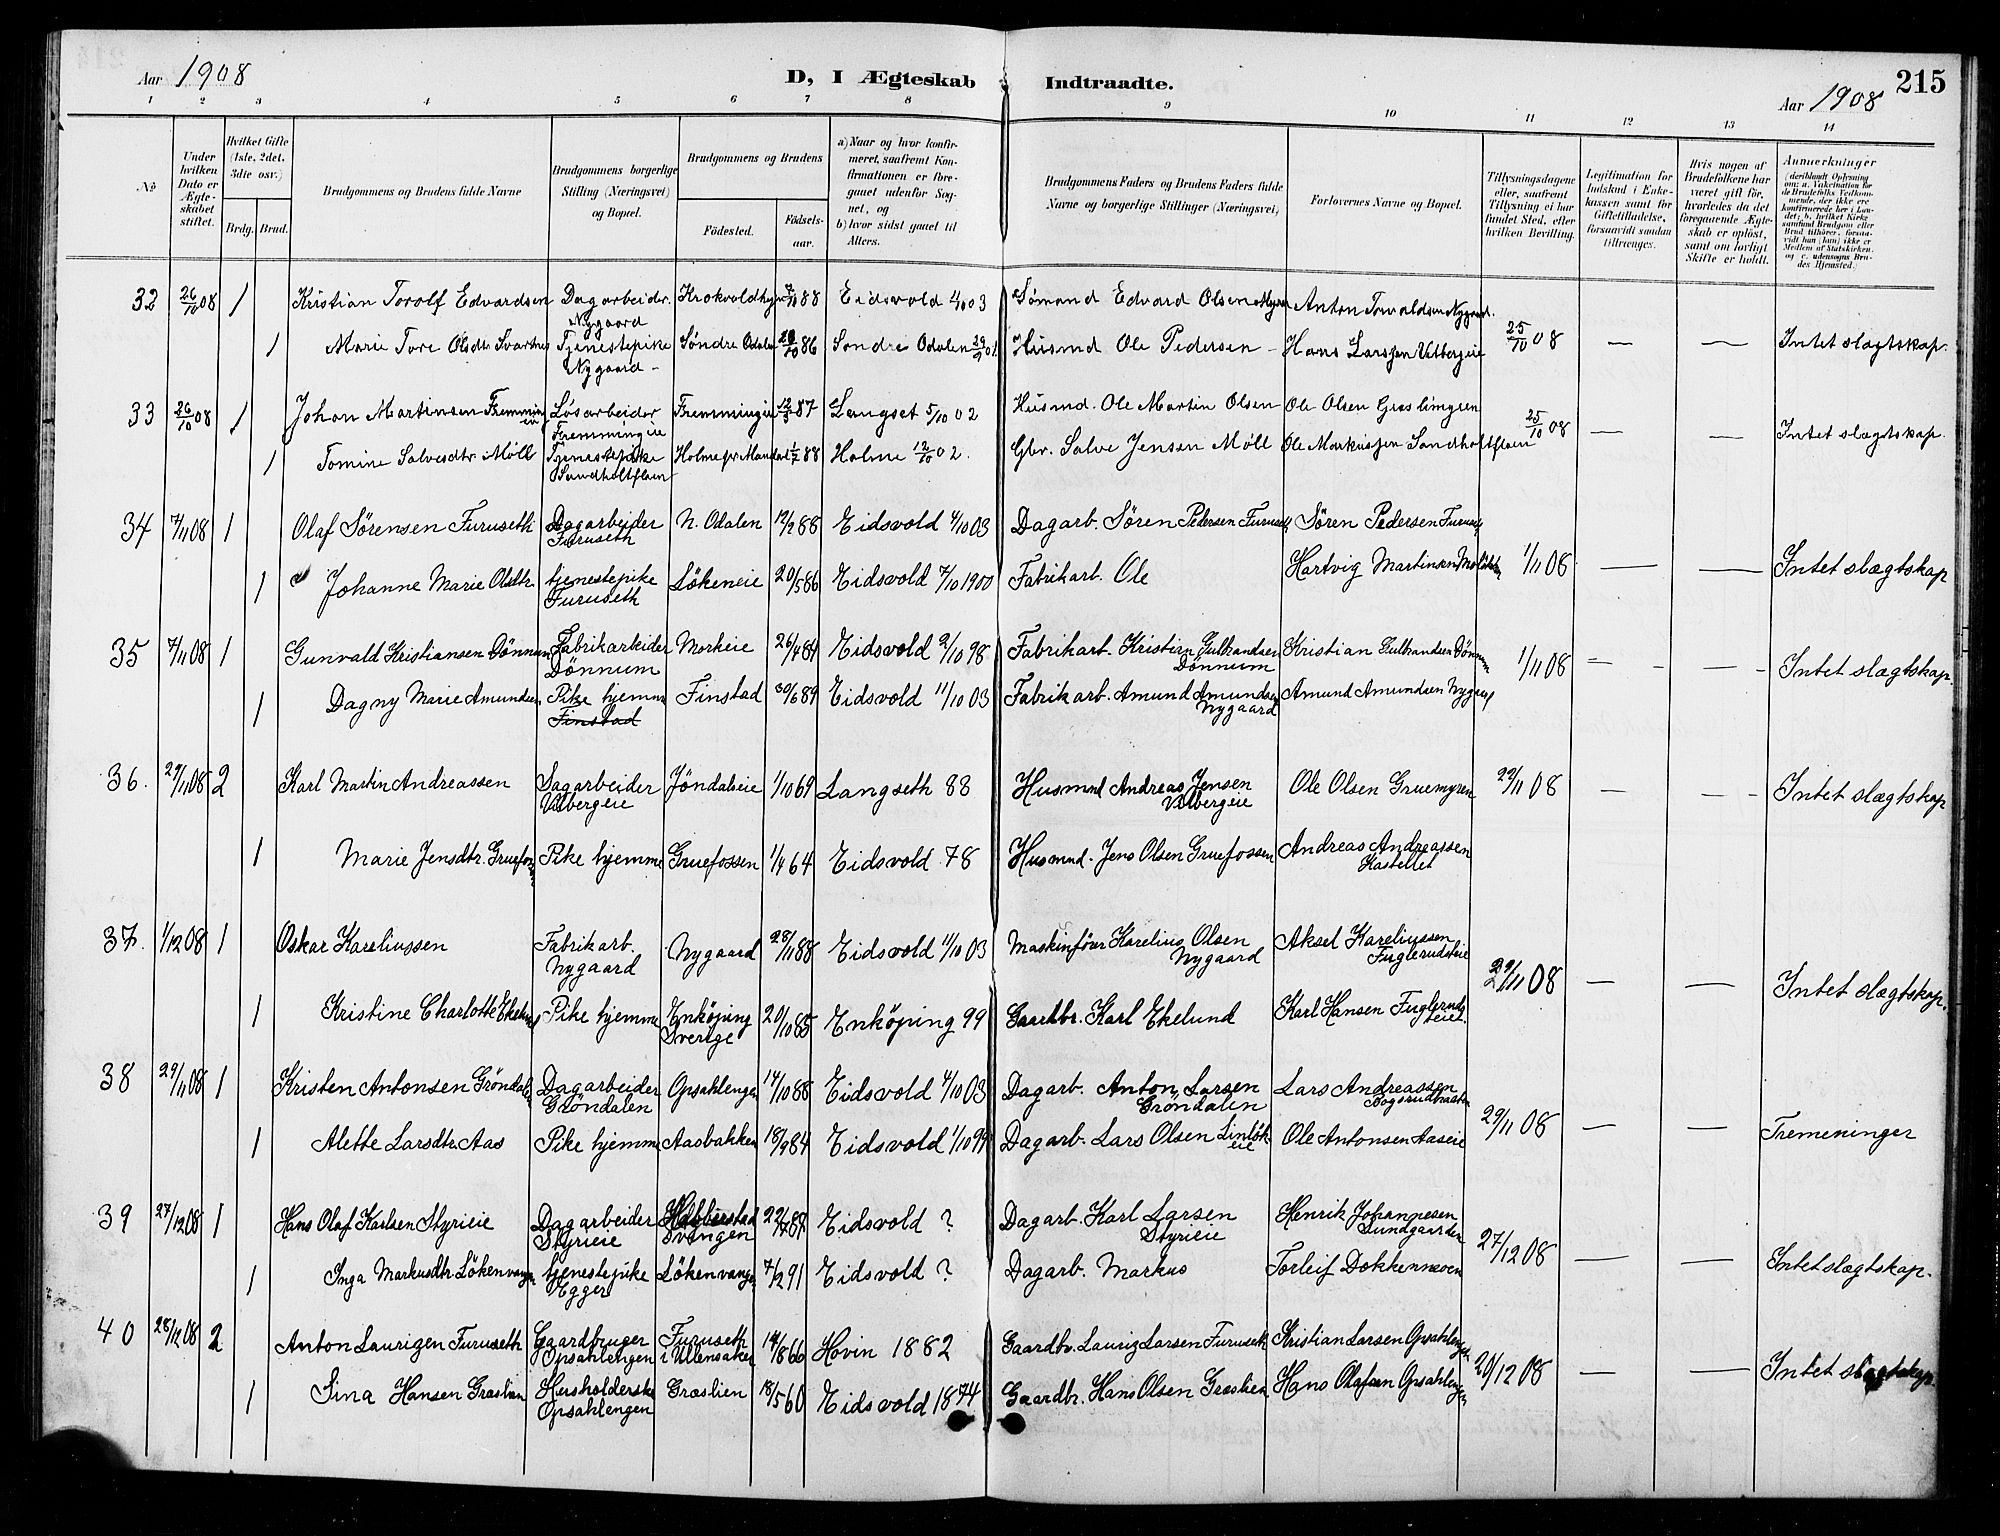 Aar 1908
D, I Ægteskab Indtraadte.
215
Aar 1908
1 2 3 4 5 6 7 8 9 10 11 12 13 14
No
Under hvilken Dato er Ægteskabet stiftet.
Hvilket Gifte (1ste, 2det, 3die osv.)
Brdg. Brud.
Brudgommens og Brudens fulde Navne
Brudgommens borgerlige Stilling (Næringsvei) og Bopæl.
Brudgommens og Brudens
Fødested. Fødselsaar.
a) Naar og hvor konfirmeret, saafremt Konfirmationen er foregaaet udenfor Sognet, og
b) hvor sidst gaaet til Alters.
Brudgommens Faders og Brudens Faders fulde Navne og borgerlige Stillinger (Næringsvei)
Forlovernes Navne og Bopæl.
Tillysningsdagene eller, saafremt Tillysning ei har fundet Sted, efter hvilken Bevilling.
Legitimation for Indskud i Enkekassen samt for Giftetilladelse, forsaavidt saadan tiltrænges.
Hvis nogen af Brudefolkene har været gift før, hvorledes da det foregaaende Ægteskab er opløst, samt om lovligt Skifte er holdt.
Anmerkninger (deriblandt Oplysning om: a. Vakcination for de Brudefolks Vedkommende, der ikke ere konfirmerede her i Landet; b. hvilket Kirkesamfund Brudgom eller Brud tilhører, forsaavidt han (hun) ikke er Medlem af Statskirken, og c. udensogns Brudes Hjemsted.)
32 26/10 08 1 Kristian Torolf Edvardsen Dagarbeider Nygaard 7/10 88 Eidsvold 4/10 03 Sømand Edvard Olsen Anton Torvaldsen Nygaard.
1 Marie Tore Olsdtr. Tjenestepike Nygaard Søndre Odalen 86 Søndre Odalen Husmd Ole Pedersen Hans Larssen Vilbergeie 25/10 08 — — Intet slagtskap.
33 26/10 08 1 Johan Martinsen Fremmingeie Løsarbeider Fremmingeie Fremmingeie 12/3 87 Langset 5/10 02 Husmd. Ole Martin Olsen Ole Olsen
1 Tomine Salvesdtr. Møll Tjenestepike Sandholtfloen Holme pr Mandal 1/7 88 Holme 12/10 02. Gbr. Salve Jensen Møll Ole Markussen Sandholtfloen 25/10 08 — — Intet slagtskap.
34 7/11 08 1 Olaf Sörensen Furuseth Dagarbeider Furuseth N. Odalen 12/2 88 Eidsvold 4/10 03 Dagarb. Sören Pedersen Furuseth Sören Pedersen Furuseth
1 Johanne Marie Olsdtr. tjenestepike Furuseth Lökeneie 20/5 86 Eidsvold 7/10 1900 Fabrikarb. Ole Hartvig Martinsen 1/11 08 — — Intet slagtskap
35 7/11 08 1 Gunvald Kristiansen Dönnum Fabrikarbeider Dönnum Morkeie 26/4 84 Eidsvold 2/10 98 Fabrikarb. Kristian Gulbrandsen Dönnum Kristian Gulbrandsen Dönnum
1 Dagny Marie Amundsen Pike hjemme Finstad Finstad 30/6 89 Eidsvold 11/10 03 Fabrikarb. Amund Amundsen Nygaard Amund Amundsen Nygaard 1/11 08 — — Intet slægtskap.
36. 29/11 08 2 Karl Martin Andreassen Dagarbeider Vilbergeie Jöndaleie 1/10 69 Langseth 88 Husmnd Andreas Jensen Vilbergeie Ole Olsen Gruemyren 22/11 08 — — Intet slagtskap
1 Marie Jensdtr. Gruefossen Pike hjemme Gruefossen 1/4 64 Eidsvold 78 Husmnd. Jens Olsen Gruefossen Andreas Andreassen Kastellet
37. 1/12 08 1 Oskar Kareliussen Fabrikarb. Nygaard Nygaard 28/11 88 Eidsvold 11/10 03 Maskinförer Karelius Olsen Nygaard Aksel Kareliussen Fuglerudeie
1 Kristine Charlotte Ekelund Pike hjemme Enköping Sverige 20/10 85 Enköping 99 Gaardbr. Karl Ekelund Karl Hansen Fuglerudeiet. 29/11 08 — — Intet slægtskap.
38 29/11 08 1 Kristen Antonsen Gröndalen Dagarbeider Gröndalen Opsahlengen 14/10 88 Eidsvold 4/10 03 Dagarb. Anton Larsen Gröndalen Lars Andreassen
1 Alette Larsdtr. Aas Pike hjemme Aasbakken 18/9 84 Eidsvold 1/10 99 Dagarb. Lars Olsen Ole Antonsen Aaseie 29/11 08 — — Tremeninger
39 27/12 08 1 Hans Olaf Karlsen Styrieie Dagarbeider Styrieie Svingen Eidsvold ? Dagarb. Karl Larsen Styrieie Henrik Johannesen Sundgaarden
1 Inga Markusdtr. Lökenvangen tjenestepike Egger Lökenvangen 7/2 91 Eidsvold ? Dagarb. Markus Torleif Dokkenesven 27/12 08 — — Intet slægtskap.
40 28/12 08 2 Anton Laurizen Furuseth Gaardbruger Opsahlengen Furuseth i Ullensaker 14/8 66 Hovin 1882 Gaardbr. Lauriz Larsen Furuseth Kristian Larsen Opsahlengen
1 Sina Hansen Græslien Husholderske Opsahlengen Græslien 18/5 60 Eidsvold 1874 Gaardbr. Hans Olsen Græslien Hans Olafsen Opsahlengen 20/12 08 — — Intet slægtskap.